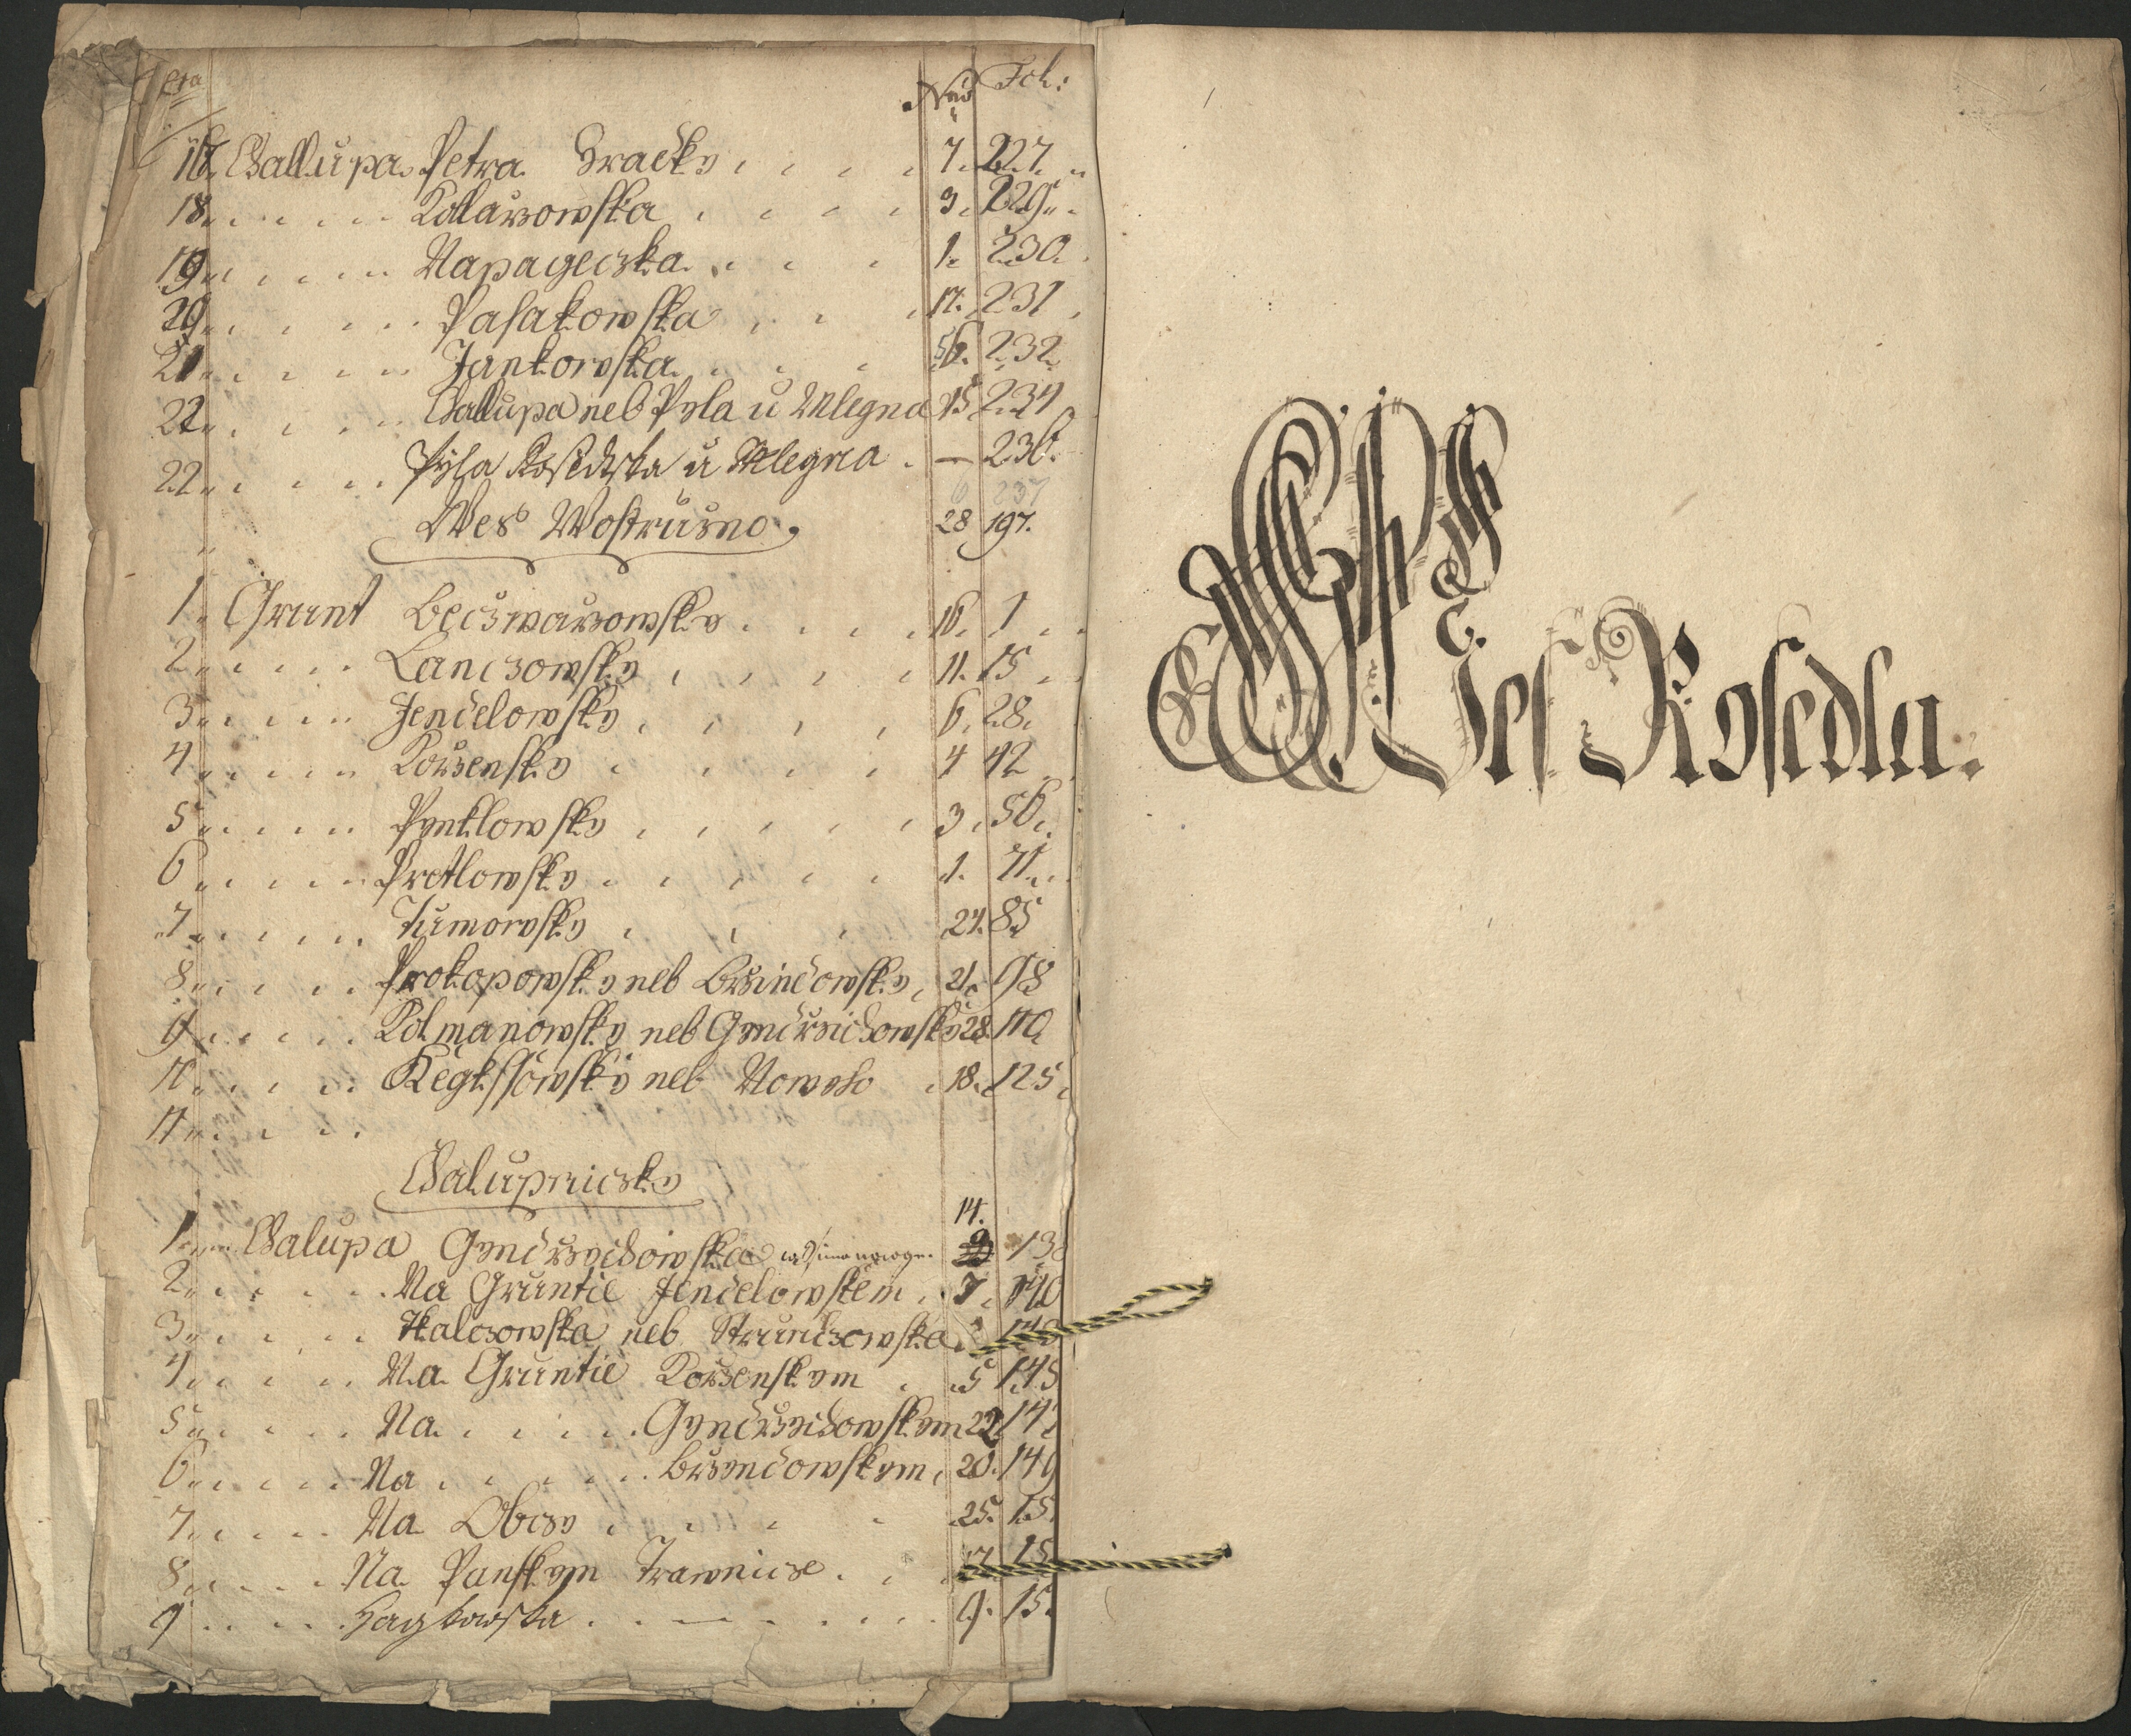 Nro Fol:
17. Challupa Petra Hraďky 7. 227.
18. Kollarzowska 9. 229.
19. Napageczka 1. 230.
20. Pasakowska 17. 231
21. Jankowska 56. 232.
22. Challupa neb Pyla u Mlegna 15 234
22 Pyla Rosedska u Mlegna — 236.
6 237
Wes Wostružno 28 197.
1. Grunt Beczwarzowsky 16. 1
2. Lanczowsky 11. 15
3. Jenčelowsky 6. 28.
4. Korzensky 4 42
5 Pyntlowsky 3. 56.
6 Protlowsky 1. 71.
7 Tumowsky 24. 85
8. Prokopowsky neb Brzinčowsky 21. 98
9. Kolmanowsky neb Gyndrzichowsky 28. 110
10. Regkssowsky neb Noweho 18. 125.
11.
Chalupniczky
14.
1. Chalupa Gyndrzychowska 138
2. Na Gruntie Jenčelowskem 7. 140
3. Skalczowska neb Strunczowska
4. Na Gruntie Korzenskym 5 145
5. Na Gyndrzychowskym 22 147
6. Na Brzynčowskym 20. 149
7. Na Obczy 25. 15
8. Na Panskym Trawnicze 15
9 Hagkowska 9. 15
Wes Rosedla.